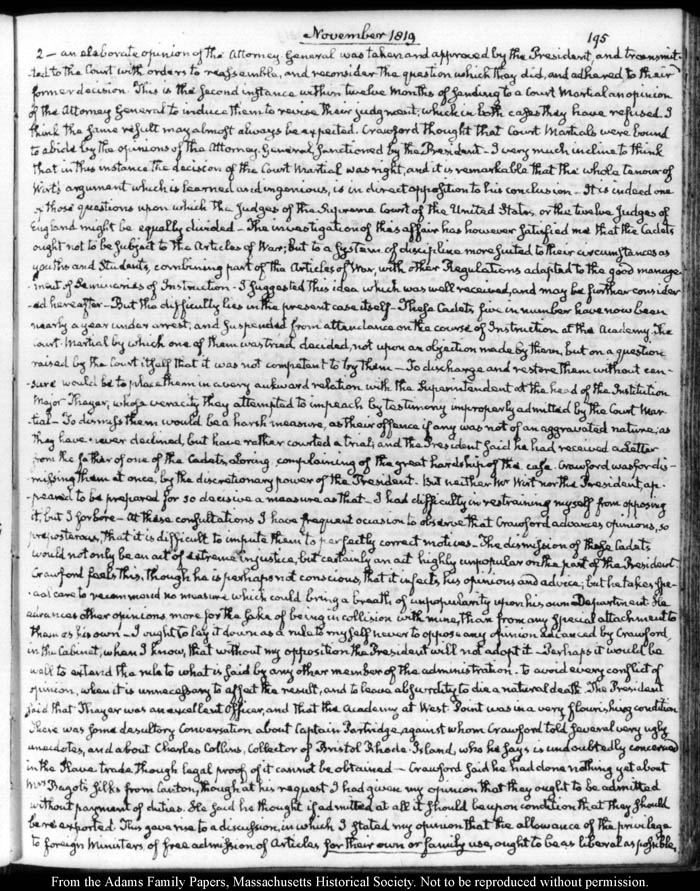 November 1819
195
2 — an elaborate opinion of the Attorney General was taken and approved by the President, and transmit-
-ted to the Court with orders to reassemble, and reconsider the question which they did, and adhered to their
former decision. This is the second instance within twelve months of sending to a Court Martial an opinion
of the Attorney General to induce them to revise their judgment, which in both cases they have refused. I
think the same result may almost always be expected. Crawford thought that Court Martials were bound
to abide by the opinions of the Attorney General, sanctioned by the President — I very much incline to think
that in this instance the decision of the Court Martial was right, and it is remarkable that the whole tenour of
Wirt's argument which is learned and ingenious, is in direct opposition to his conclusion — It is indeed one
of those questions upon which the Judges of the Supreme Court of the United States, or the twelve Judges of
England might be equally divided — The investigation of this affair has however satisfied me that the Cadets
ought not to be subject to the Articles of War; but to a System of discipline more suited to their circumstances as
youths and Students, combining part of the Articles of War, with other Regulations adapted to the good manage-
-ment of Seminaries of Instruction — I suggested this idea which was well received, and may be further consider-
-ed hereafter — But the difficulty lies in the present case itself — These Cadets five in number have now been
nearly a year under arrest, and suspended from attendance on the course of Instruction at the Academy. The
Court-Martial by which one of them was tried, decided, not upon an objection made by them, but on a question
raised by the Court itself that it was not competent to try them — To discharge and restore them without cen-
-sure would be to place them in a very awkward relation with the Superintendent at the head of the Institution
Major Thayer, whose veracity they attempted to impeach by testimony improperly admitted by the Court Mar-
-tial — To dismiss them would be a harsh measure, as their offence if any was not of an aggravated nature; as
they have never declined, but have rather courted a trial; and the President said he had received a Letter
from the father of one of the Cadets, Loring, complaining of the great hardship of the case. Crawford was for dis-
-missing them at once, by the discretionary power of the President. But neither Mr Wirt nor the President, ap-
-peared to be prepared for so decisive a measure as that — I had difficulty in restraining myself from opposing
it, but I forbore — At these consultations I have frequent occasion to observe that Crawford advances opinions, so
preposterous, that it is difficult to impute them to perfectly correct motives. The dismission of these Cadets
would not only be an act of extreme injustice, but certainly an act highly unpopular on the part of the President.
Crawford feels this, though he is perhaps not conscious, that it infects his opinions and advice; but he takes spe-
-cial care to recommend no measure which could bring a breath of unpopularity upon his own Department. He
advances other opinions more for the sake of being in collision with mine, than from any special attachment to
them as his own — I ought to lay it down as a rule to myself never to oppose any opinion advanced by Crawford,
in the Cabinet, when I know, that without my opposition the President will not adopt it — Perhaps it would be
well to extend the rule to what is said by any other member of the administration — to avoid every conflict of
opinion, when it is unnecessary to affect the result, and to leave absurdity to die a natural death. The President
said that Thayer was an excellent Officer, and that the Academy at West Point was in a very flourishing condition
There was some desultory conversation about Captain Partridge, against whom Crawford told several very ugly
anecdotes, and about Charles Collins, Collector of Bristol Rhode-Island, who he says is undoubtedly concerned
in the Slave trade though legal proof of it cannot be obtained — Crawford said he had done nothing yet about
Mrs Bagot's silks from Canton, though at his request I had given my opinion that they ought to be admitted
without payment of duties. He said he thought if admitted at all it should be upon condition that they should
be re-exported. This gave rise to a discussion, in which I stated my opinion that the allowance of the privilege
to foreign Ministers of free admission of Articles for their own or family use, ought to be as liberal as possible,
From the Adams Family Papers, Massachusetts Historical Society. Not to be reproduced without permission.